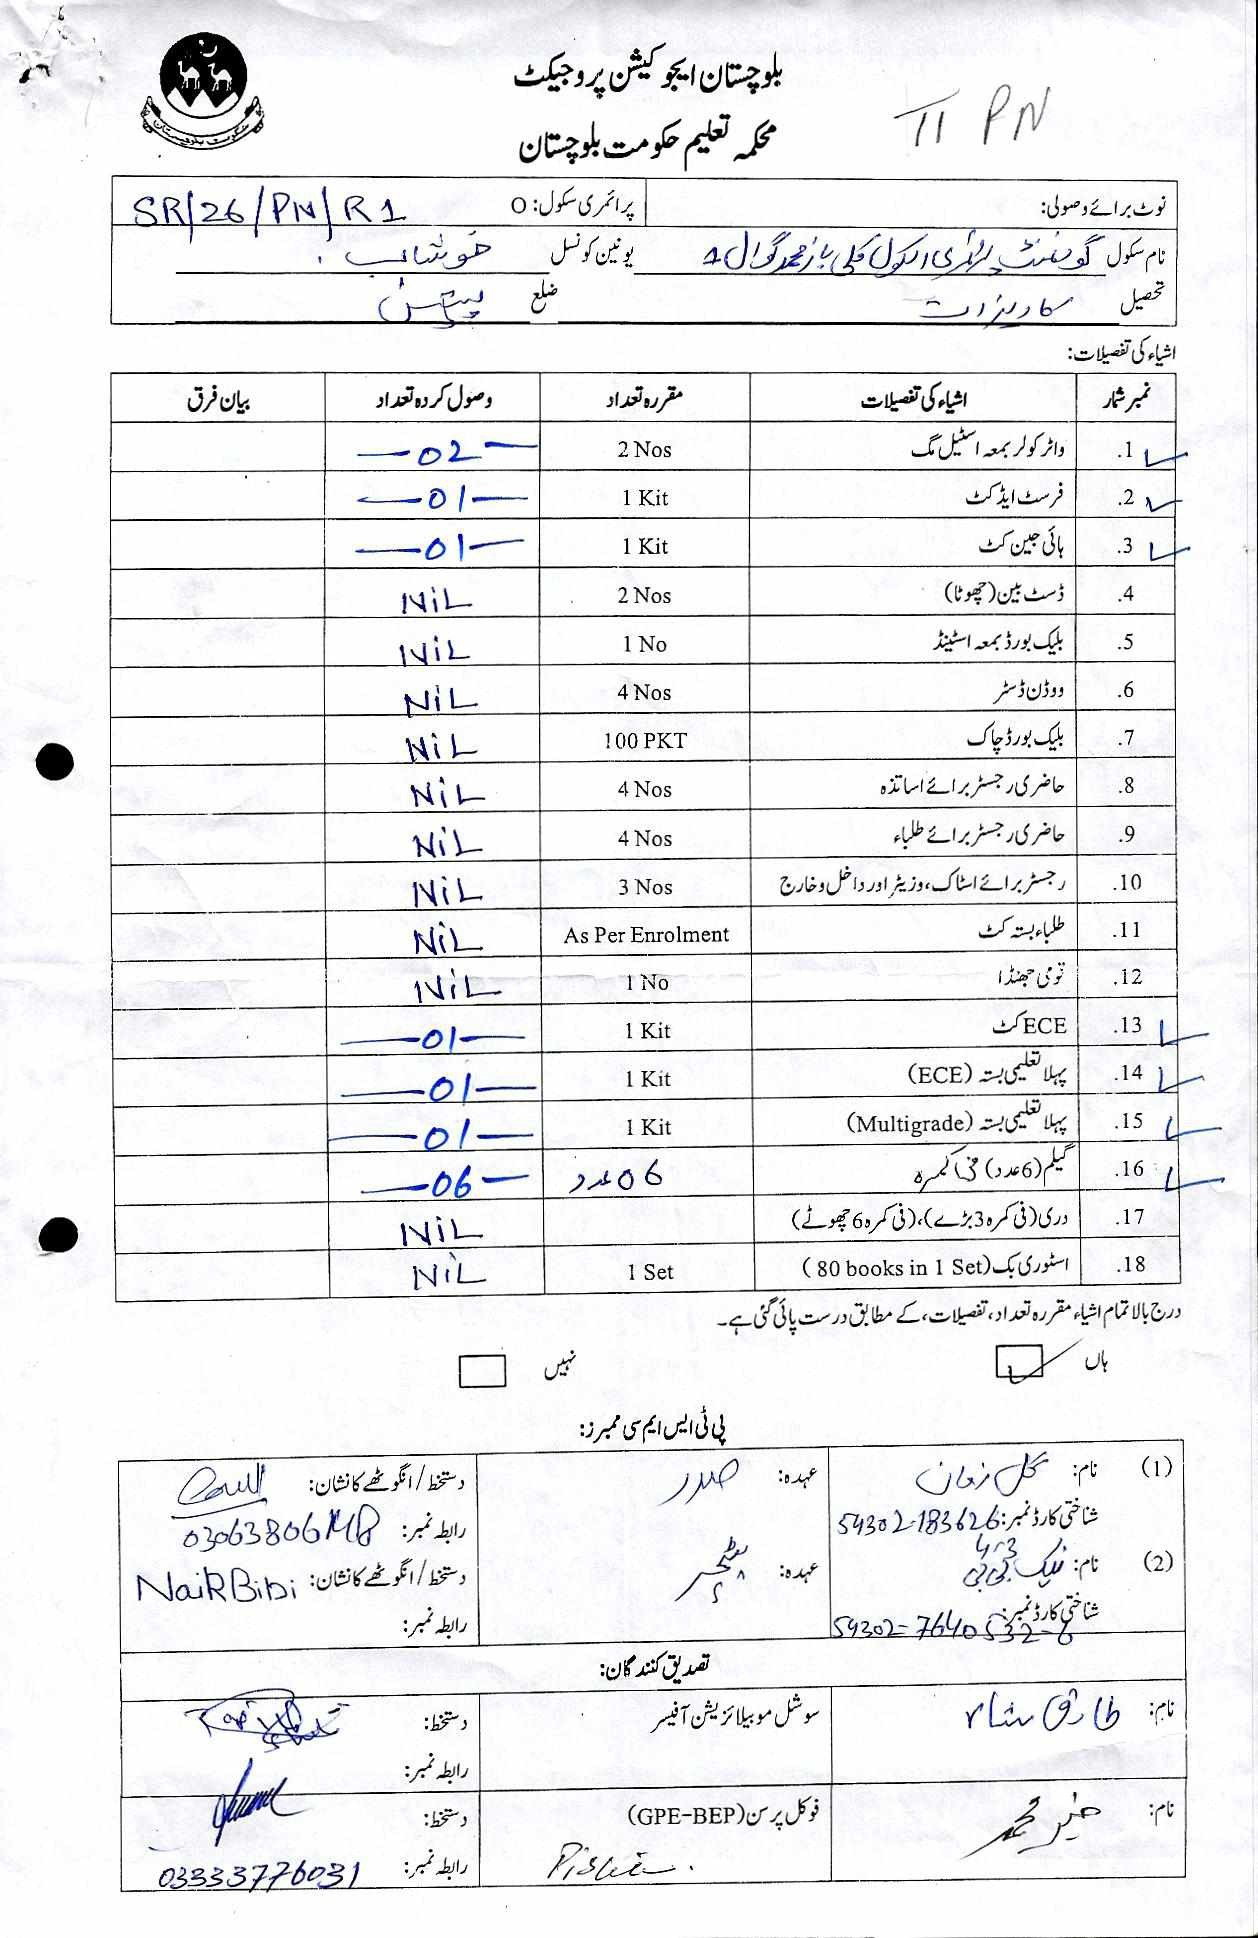 حکومت بلوچستان
بلوچستان ایجوکیشن پروجیکٹ
محکمہ تعلیم حکومت بلوچستان
TI PN
نوٹ برائے وصولی: پرائمری سکول: O SR/26/PN/R1
نام سکول گورنمنٹ پرائمری اسکول کلی باز محمد گوال یونین کونسل خوشاب
تحصیل کاریزات ضلع پشین
اشیاء کی تفصیلات:
نمبر شمار اشیاء کی تفصیلات مقررہ تعداد وصول کردہ تعداد بیان فرق
1. واٹر کولر بمعہ اسٹیل مگ 2 Nos 02
2. فرسٹ ایڈ کٹ 1 Kit 01
3. ہائی جین کٹ 1 Kit 01
4. ڈسٹ بین (چھوٹا) 2 Nos NiL
5. بلیک بورڈ بمعہ اسٹینڈ 1 No NiL
6. ووڈن ڈسٹر 4 Nos NiL
7. بلیک بورڈ چاک 100 PKT NiL
8. حاضری رجسٹر برائے اساتذہ 4 Nos NiL
9. حاضری رجسٹر برائے طلباء 4 Nos NiL
10. رجسٹر برائے اسٹاک، وزیٹر اور داخل و خارج 3 Nos NiL
11. طلباء بستہ کٹ As Per Enrolment NiL
12. قومی جھنڈا 1 No NiL
13. ECE کٹ 1 Kit 01
14. پہلا تعلیمی بستہ (ECE) 1 Kit 01
15. پہلا تعلیمی بستہ (Multigrade) 1 Kit 01
16. گیلم (6 عدد) فی کمرہ 06 عدد 06
17. دری (فی کمرہ 3 بڑے)، (فی کمرہ 6 چھوٹے) NiL
18. اسٹوری بک (80 books in 1 Set) 1 Set NiL
درج بالا تمام اشیاء مقررہ تعداد، تفصیلات، کے مطابق درست پائی گئی ہے۔
ہاں نہیں
پی ٹی ایس ایم سی ممبرز:
(1) نام: گل زمان عہدہ: صدر دستخط / انگوٹھے کا نشان:
شناختی کارڈ نمبر: 54302-183626 4-3 رابطہ نمبر:
(2) نام: نیک بی بی عہدہ: ٹیچر دستخط / انگوٹھے کا نشان: Naik Bibi
شناختی کارڈ نمبر: 54302-7640532-6 رابطہ نمبر:
تصدیق کنندگان:
نام: طارق شاہ سوشل موبیلائزیشن آفیسر دستخط:
رابطہ نمبر:
نام: فوکل پرسن (GPE-BEP) دستخط:
Pishin. رابطہ نمبر: 03333776031